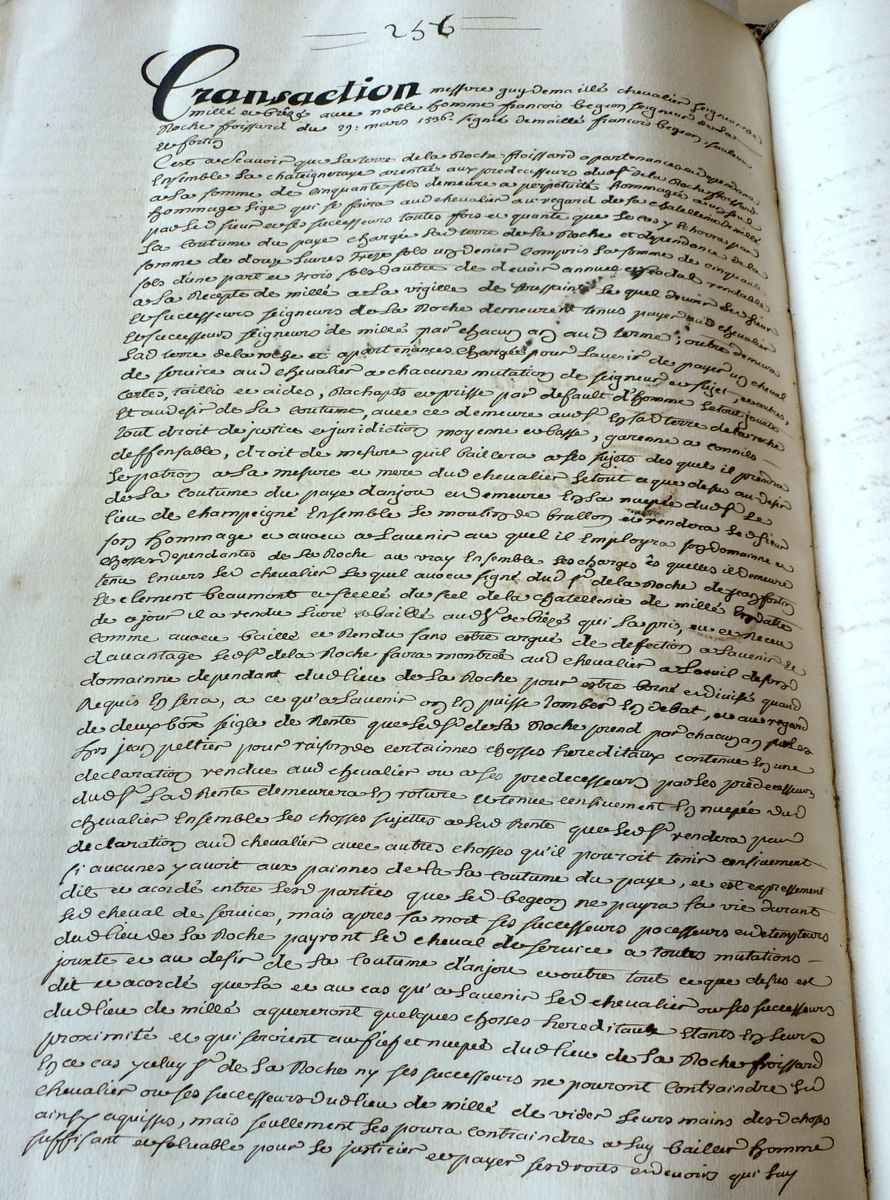 256
Transaction messire guy de maillé chevalier seigneur de
millé et brézé avec noble homme francois begeon seigneur de la
Roche froissard du 29: mars 1536. signé demaillé francois begeon,
et fortin
C'est a scavoir que La terre de la Roche froissard apartenances et dependances
Ensemble La chateigneraye arentée aux predecesseurs dud sr de la Roche froissard
a La somme de cinquante sols demeure a perpetuité hommagée a un seul
hommage Lige qui se faira aud chevalier au regard de sa chatellenie de millé
par Led sieur et ses successeurs toutes fois et quante que Le cas y Eschoira par
La coutume du paye chargé Lad terre de La Roche et dependance de La
somme de douze Livres treze sols un denier compris La somme de cinquante
sols d'une part et trois sols d'autre de devoir annuel rendable
a La Recepte de millé a La vigille de toussaint Le quel devoir Led sieur
et successeurs seigneurs de La Roche demeurent tenus payer aud chevalier
et successeurs seigneurs de millé par chacun an aud terme, outre demeure
Lad terre de la roche et apartenances chargée pour L'avenir de payer un cheval
de service aud chevalier a chacune mutation de seigneur et sujet, et autres,
Cortes, taillis et aides, Rachapts et prisse par default d'homme Le tout jouxte
Et au desir de La coutume, avec ce demeure aud sr En sad terre de la roche
tout droit de justice et juridiction moyenne et basse, garenne a connils
deffensable, droit de mesure qu'il baillera a ses sujets des quel il prendra
Le patron a La mesure et mere dud chevalier Le tout ce que desus au desir
de La coutume du paye d'anjou et demeure En La nuepce dud sr Le
lieu de champeigné Ensemble Le moulin de brallon et rendera Led sieur
son hommage et avoeu a L'avenir au quel il Employra son domainne et
chosses dependantes de La Roche au vray Ensemble Les charges ès quelles il demeure
tenu Envers Led chevalier Le quel avoeu signé dud sr de la Roche de jean fortin
Et clement beaumont et scellé du seel de la chatellenie de millé En datte
de ce jour il a rendu Livré et baillé aud sr de brézé qui La pris, et Receu
comme avoeu baillé et Rendu sans estre argué de defection a L'avenir et
d'avantage Led sr de la Roche faira montrée aud chevalier a Loeuil de son
domainne dependant dud lieu de La Roche pour estre borné et divisé quand
Requis En sera, a ce qu'a L'avenir on En puisse tomber En debat, et au regard
de deux box seigle de Rente que Led sr de La Roche prend par chacun an sur Les
hrs jean peltier pour raison de certainnes chosses hereditaux contenue En une
declaration rendue aud chevalier ou a Ses predecesseurs par Les predecesseurs
dud sr Lad Rente demeurera En roture et tenue censivement En nuepce dud
chevalier Ensemble Les chosses sujettes a Lad Rente que Led sr rendera par
declaration aud chevalier avec autres chosses qu'il pouroit tenir censivement
si aucunes y avoit aux painnes de La La coutume du paye, et est expressement
dit et acordé entre Lesd parties que Led begeon ne payra sa vie durant
Led cheval de service, mais apres sa mort ses successeurs pocesseurs et detempteurs
dud lieu de La Roche payront Led cheval de service a toutes mutations
jouxte et au desir de La coutume d'anjou et outre tout ce que desus est
dit et acordé que La et au cas qu'a L'avenir Led chevalier ou ses successeurs
dud lieu de millé aquereront quelques chosses hereditaux Etants En Leurs
proximité et qui seroient au fief et nuepce dud lieu de La Roche froissard
En ce cas yceluy sr de La Roche ny ses successeurs ne pouront contraindre Led
chevalier ou ses successeurs dud lieu de millé de vider Leurs mains desd choses
ainsy aquisses, mais seullement Les poura contraindre a Luy bailler homme
suffisant et soluable pour Le justicier et payer ses droits et devoirs qui Luy